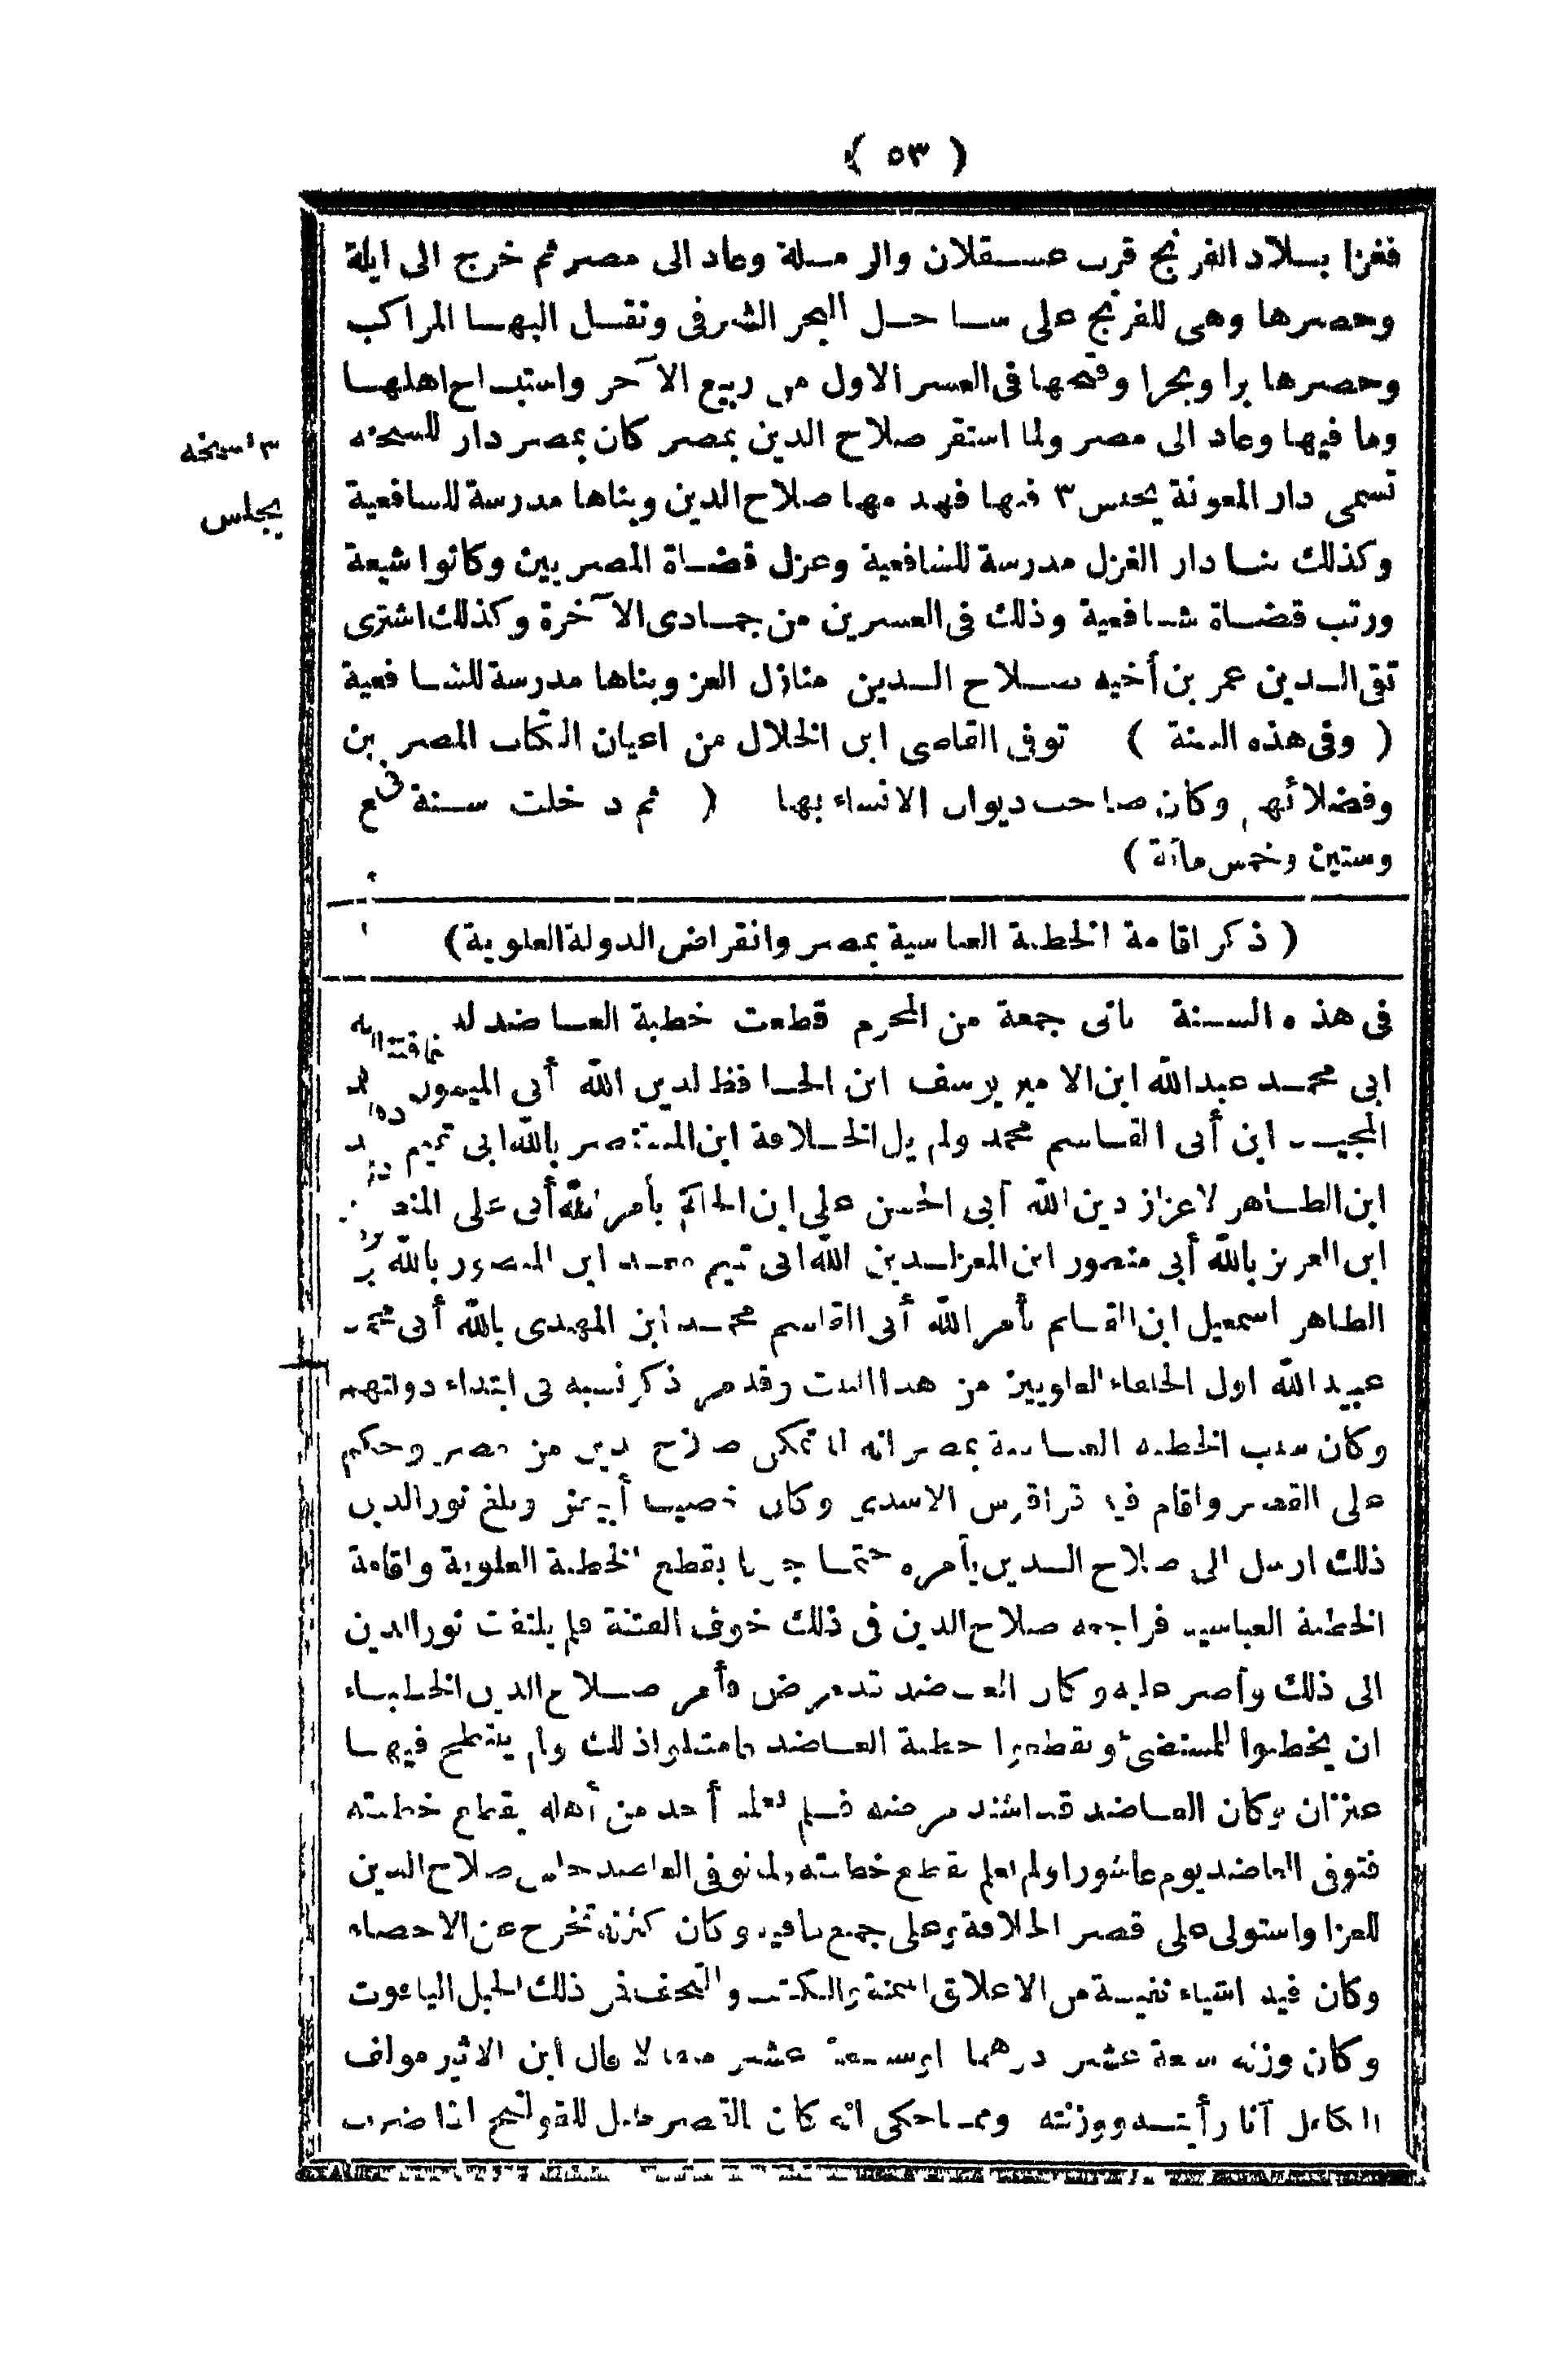 ( ٥٣ )
فغزا بلاد الفرنج قرب عسقلان والرملة وعاد الى مصر ثم خرج الى ايلة
وحصرها وهى للفرنج على ساحل البحر الشرقى ونقل اليها المراكب
وحصرها برا وبحرا وفتحها فى العشر الاول من ربيع الآخر واستباح اهلها
وما فيها وعاد الى مصر ولما استقر صلاح الدين بمصر كان بمصر دار للشحنه
٣ نسخه
تسمى دار المعونة يحبس ٣ فيها فهدمها صلاح الدين وبناها مدرسة للشافعية
يجلس
وكذلك بنا دار الغزل مدرسة للشافعية وعزل قضاة المصريين وكانوا شيعة
ورتب قضاة شافعية وذلك فى العشرين من جمادى الآخرة وكذلك اشترى
تقى الدين عمر بن أخيه صلاح الدين منازل العز وبناها مدرسة للشافعية
( وفى هذه السنة ) توفى القاضى ابن الخلال من اعيان الكتاب المصريين
وفضلائهم وكان صاحب ديوان الانشاء بها ( ثم دخلت سنة
وستين وخمس مائة )
( ذكر اقامة الخطبة العباسية بمصر وانقراض الدولة العلوية )
فى هذه السنة ثانى جمعة من المحرم قطعت خطبة العاضد
ابى محمد عبد الله ابن الامير يوسف ابن الحافظ لدين الله أبى الميمون
ابن أبى القاسم محمد ولم يل الخلافة ابن المستنصر بالله ابى تميم
ابن الظاهر لاعزاز دين الله أبى الحسن على ابن الحاكم بأمر الله أبى على
ابن العزيز بالله أبى منصور ابن المعز لدين الله ابى تميم معد ابن المنصور بالله
الطاهر اسمعيل ابن القائم بأمر الله أبى القاسم محمد ابن المهدى بالله أبى محمد
عبيد الله اول الخلفاء العلويين من هذا البيت وقد مر ذكر نسبه فى ابتداء دولتهم
وكان سبب الخطبه العباسية بمصر انه لما تمكن صلاح الدين من مصر وحكم
على القصر واقام فيه قراقوش الاسدى وكان خصيا أبيض وبلغ نور الدين
ذلك ارسل الى صلاح الدين يأمره حتما جزما بقطع الخطبة العلوية واقامة
الخطبة العباسية فراجعه صلاح الدين فى ذلك خوف الفتنة فلم يلتفت نور الدين
الى ذلك وأصر عليه وكان العاضد قد مرض فأمر صلاح الدين الخطباء
ان يخطبوا للمستضئ ويقطعوا خطبة العاضد فامتثلوا ذلك ولم ينتطح فيها
عنزان وكان العاضد قد اشتد مرضه فلم يعلمه أحد من أهله بقطع خطبته
فتوفى العاضد يوم عاشورا ولم يعلم بقطع خطبته ولما توفى العاضد جلس صلاح الدين
للعزا واستولى على قصر الخلافة وعلى جميع ما فيه وكان كثرته تخرج عن الاحصاء
وكان فيه اشياء نفيسة من الاعلاق الثمنة والكتب والتحف فمن ذلك الحبل الياقوت
وكان وزنه سبعة عشر درهما او سبعة عشر مثقالا قال ابن الاثير مولف
الكامل أنا رأيته ووزنته ومما حكى انه كان بالقصر طبل للقولنج اذا ضرب